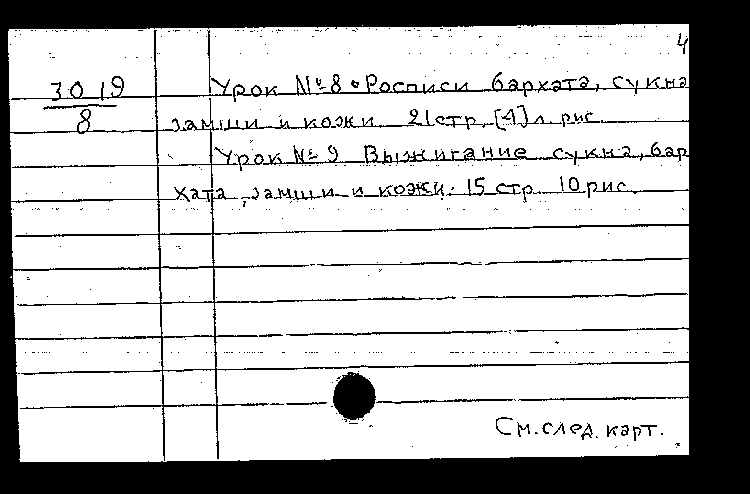 4
30 19
8
Урок № 8. Росписи бархата, сукна
замши и кожи. 21 стр. [4] л. рис.
Урок № 9 Выжигание сукна, бар
хата, замши и кожи. 15 стр. 10 рис.
См. след. карт.